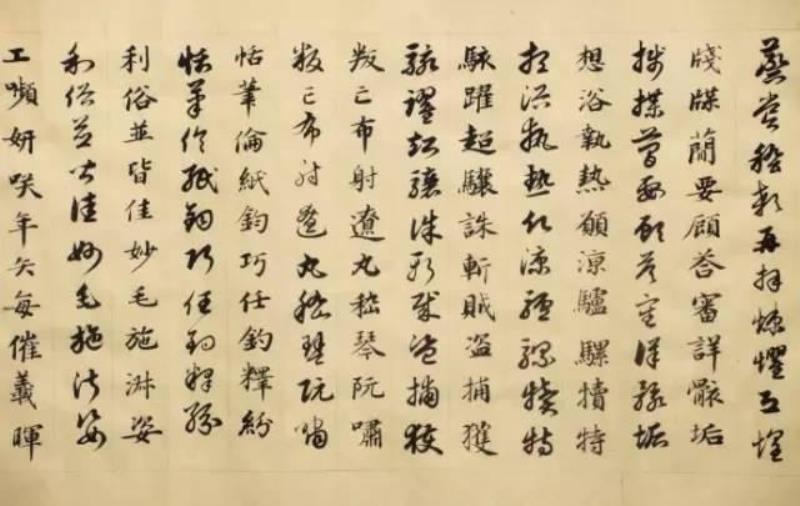 蒸嘗稽顙再拜悚懼恐惶
牋牒蕳要顧答審詳骸垢
牋牒蕳要顧答審詳骸垢
想浴執熱願涼驢騾犢特
想浴執熱願涼驢騾犢特
駭躍超驤誅斬賊盜捕獲
駭躍超驤誅斬賊盜捕獲
叛亡布射遼丸嵇琴阮嘯
叛亡布射遼丸嵇琴阮嘯
恬筆倫紙鈞巧任釣釋紛
恬筆倫紙鈞巧任釣釋紛
利俗並皆佳妙毛施淋姿
利俗並皆佳妙毛施淑姿
工嚬妍咲年矢每催羲暉